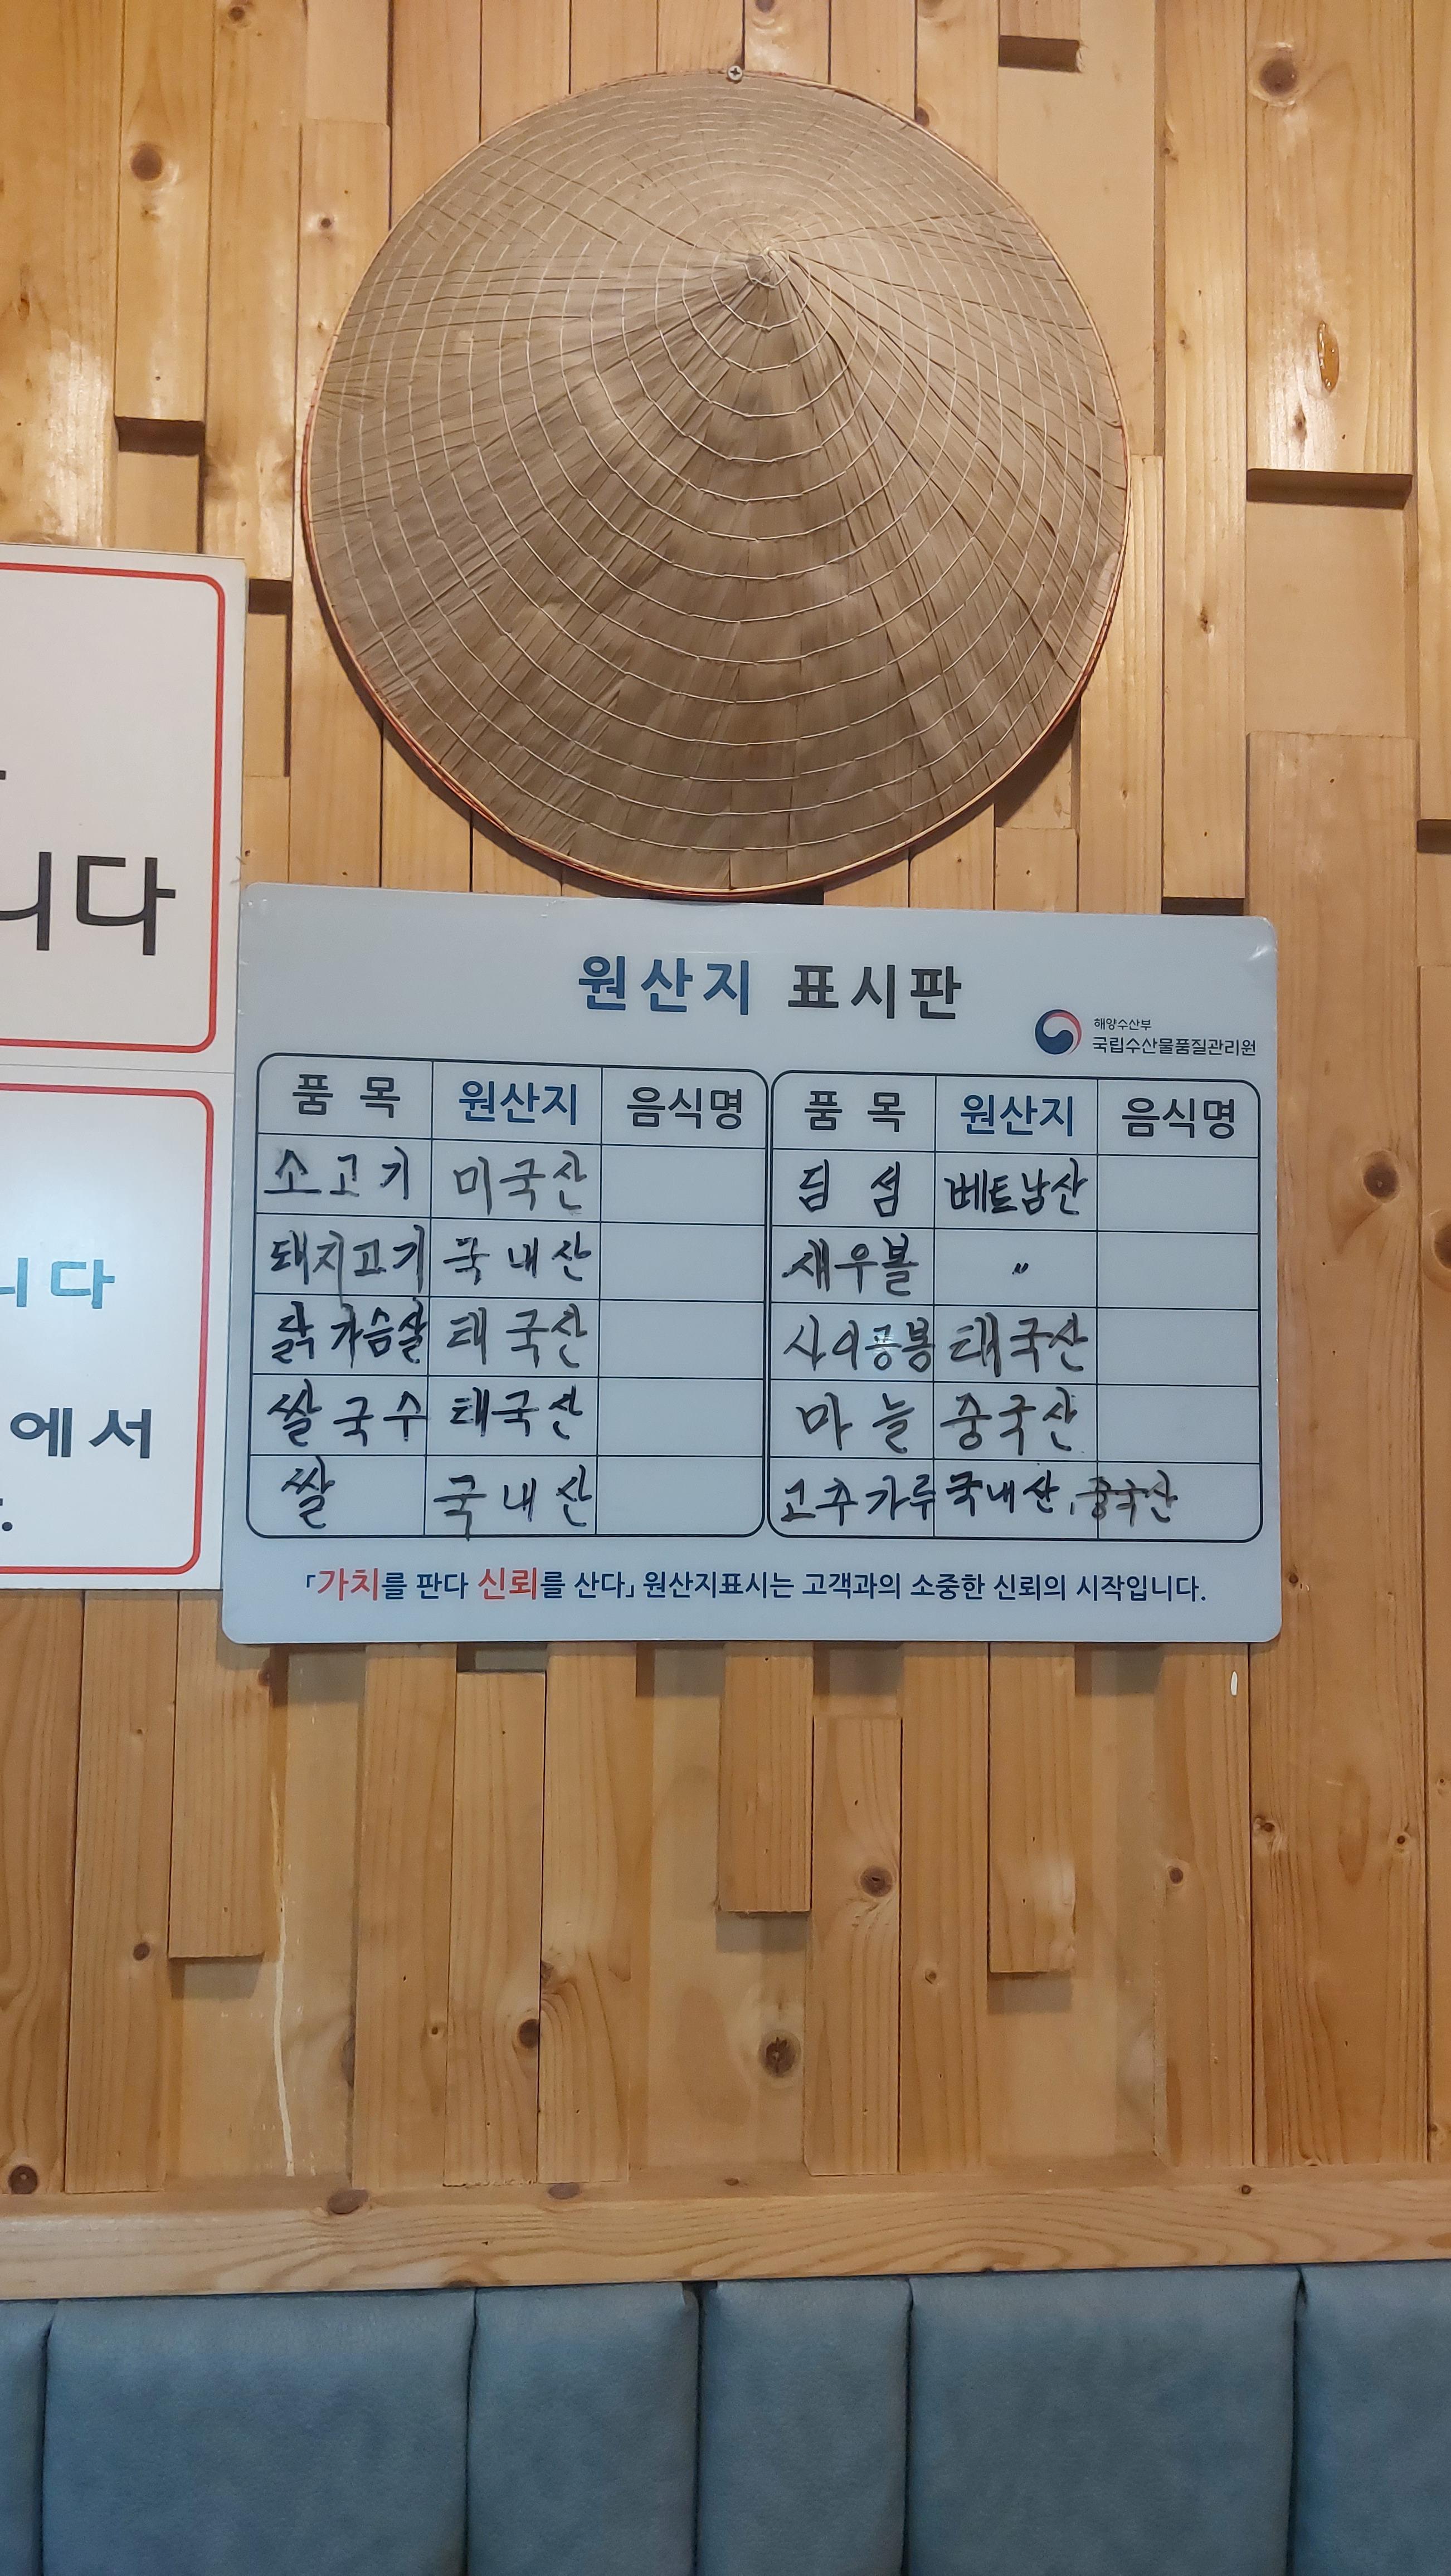 니다
니다
에서
원산지 표시판
해양수산부
국립수산물품질관리원
품 목 원산지 음식명 품 목 원산지 음식명
소고기 미국산 딤 섬 베트남산
돼지고기 국내산 새우볼 〃
닭가슴살 태국산 사이공봉 태국산
쌀국수 태국산 마늘 중국산
쌀 국내산 고추가루 국내산, 중국산
「가치를 판다 신뢰를 산다」 원산지표시는 고객과의 소중한 신뢰의 시작입니다.